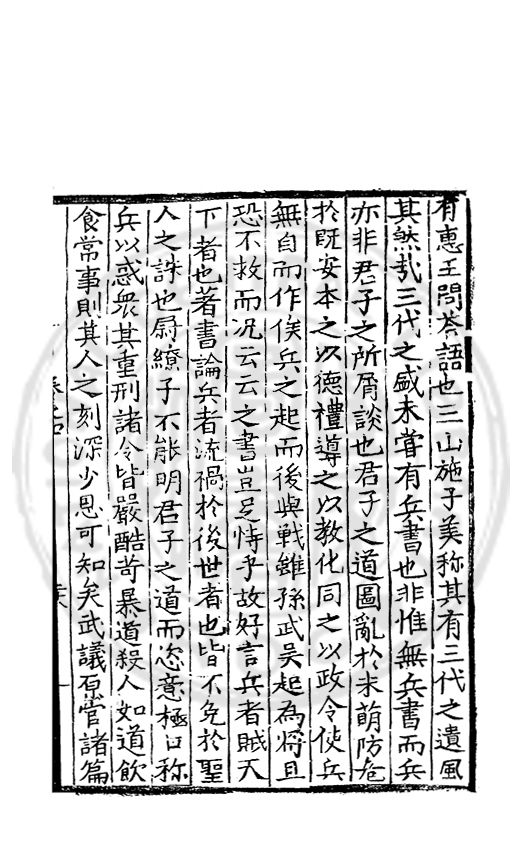 有惠王問荅語也三山施子美称其有三代之遺風
其然㢤三代之盛未嘗有兵書也非惟無兵書而兵
亦非君子之所屑談也君子之道圖亂於未萌防危
於旣安本之以德禮導之以教化同之以政令使兵
無自而作俟兵之起而後與戰雖孫武吴起為將且
恐不救而况云云之書豈足恃乎故好言兵者賊天
下者也著書論兵者流禍於後世者也皆不免於聖
人之誅也尉繚子不能明君子之道而恣意極口称
兵以惑衆其重刑諸令皆嚴酷苛暴道殺人如道飲
食常事則其人之刻深少恩可知矣武議原官諸篇